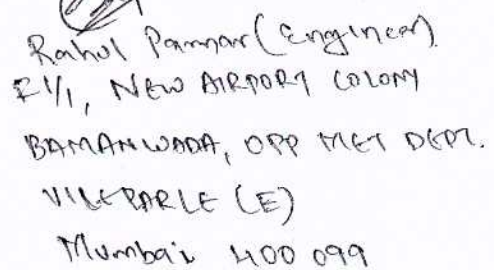 Rahul Parmar (Engineer)
F 1/1, NEW AIRPORT COLONY
BAMANWADA, OPP MET DEPT.
VILEPARLE (E)
Mumbai 400 099